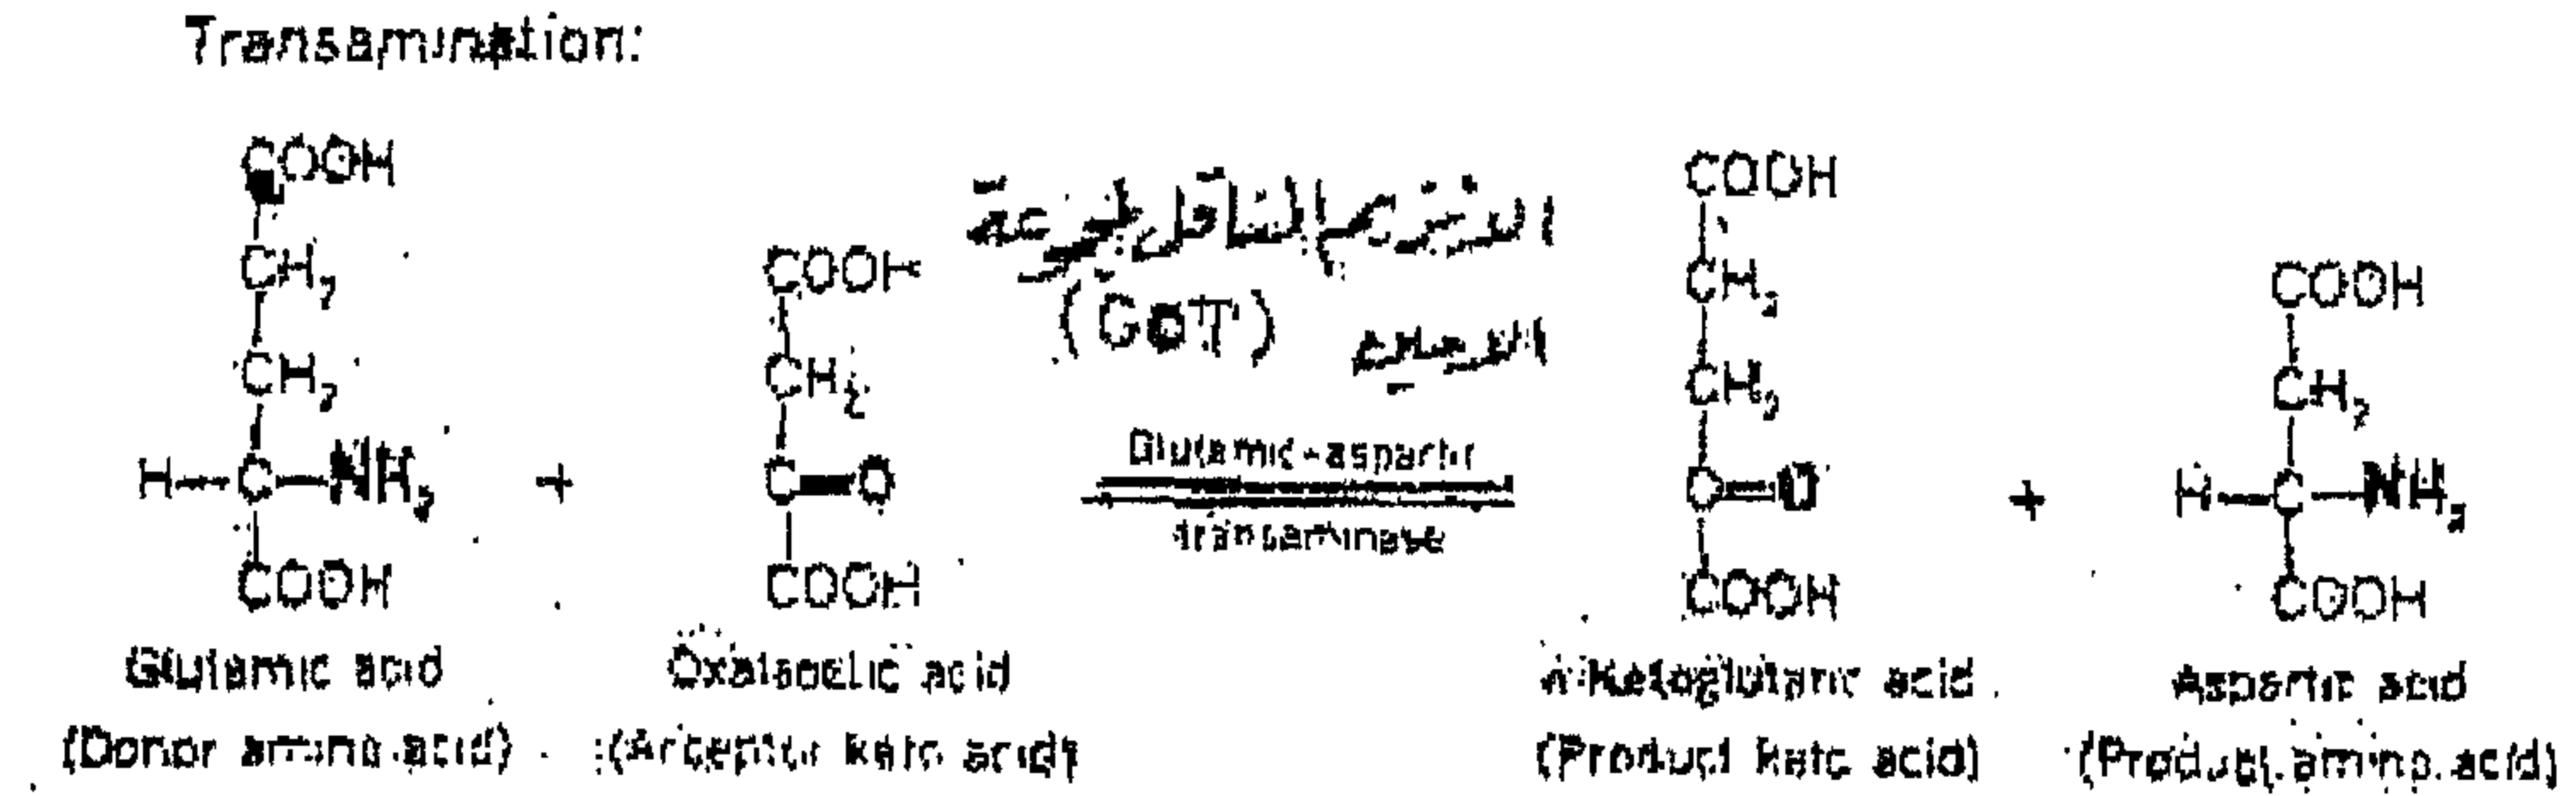 Transamination:
COOH
CH2
CH2
H—C—NH2
COOH
Glutamic acid
(Donor amino acid)
+
COOH
CH2
C=O
COOH
Oxalacetic acid
(Acceptor keto acid)
الانزيم الناقل لمجموعة
الامين (GOT)
Glutamic-aspartic
transaminase
COOH
CH2
CH2
C=O
COOH
α-Ketoglutaric acid
(Product keto acid)
+
COOH
CH2
H—C—NH2
COOH
Aspartic acid
(Product amino acid)